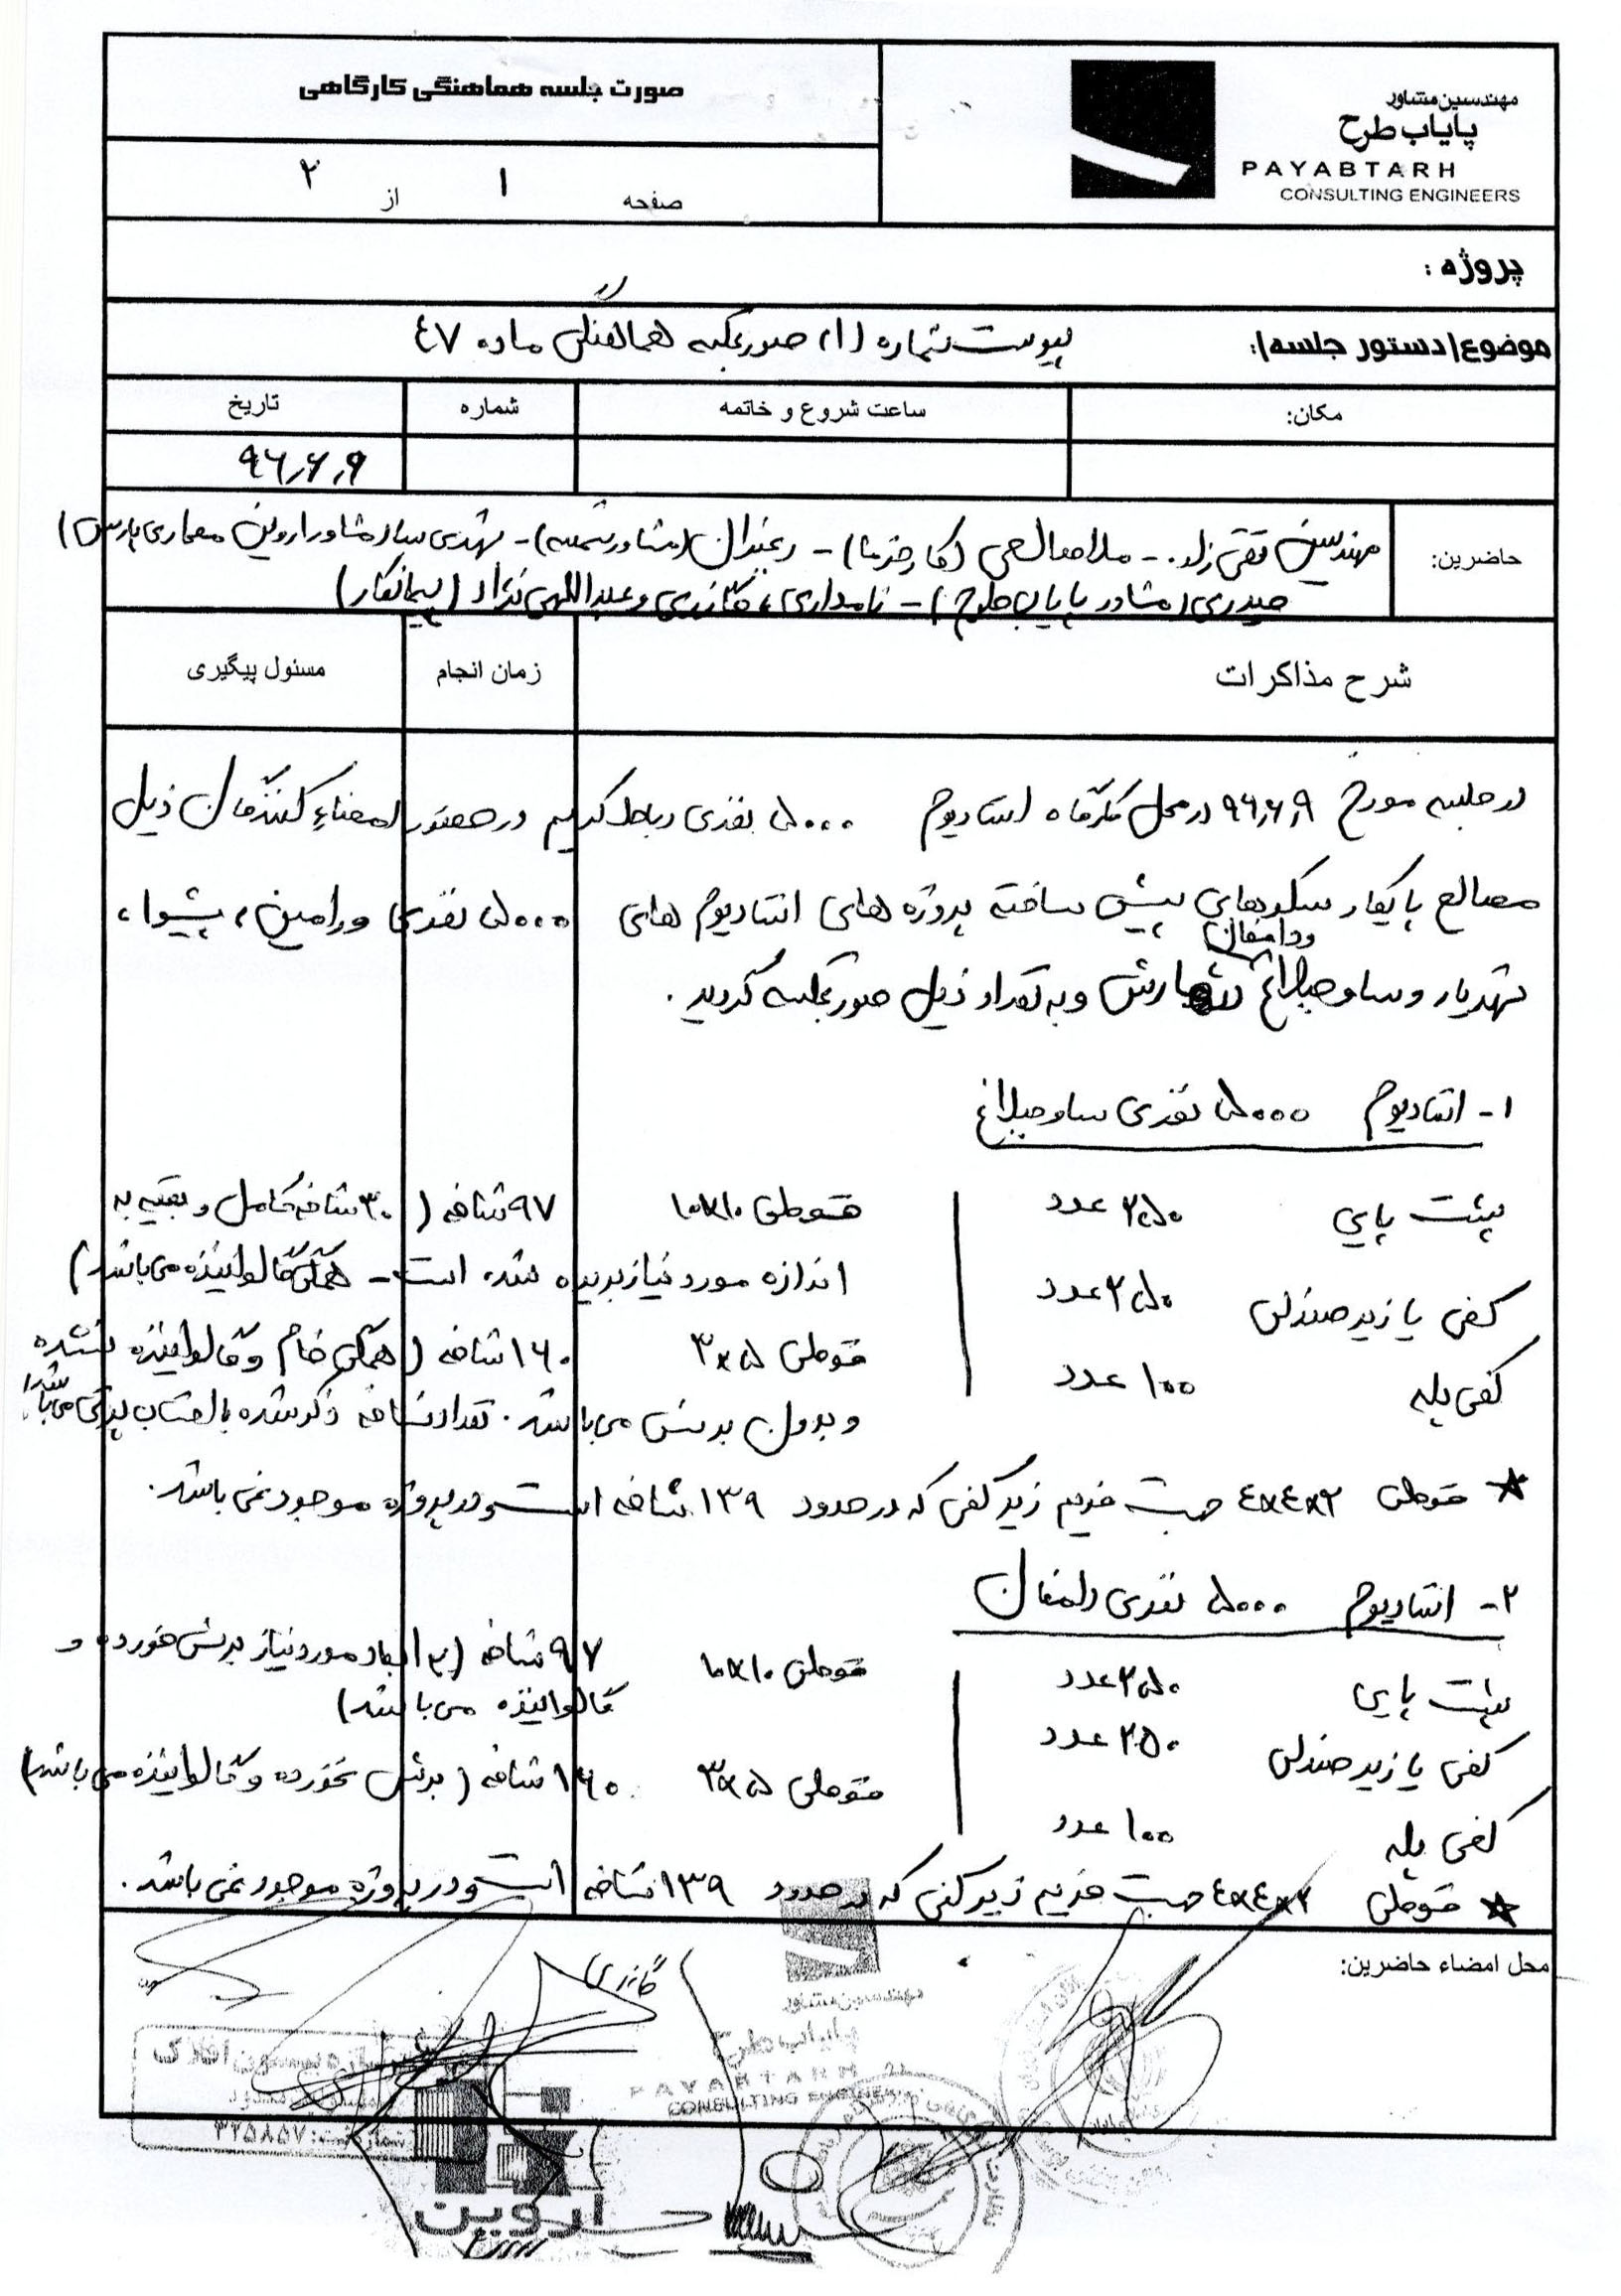 صورت جلسه هماهنگی کارگاهی
مهندسین مشاور
پایاب طرح
PAYABTARH
CONSULTING ENGINEERS
صفحه ۱ از ۲
پروژه :
موضوع/دستور جلسه/: پیوست شماره (۱) صورتجلسه هماهنگی ماده ٤٧
مکان: ساعت شروع و خاتمه شماره تاریخ
۹۶,۶,۹
حاضرین: مهندسین تقی زاده - ملاصالحی (کارفرما) - (مشاور - مشاور اروین معماری پارس)
حیدری (مشاور پایاب طرح) - نامداری، گازری و عبداللهی نژاد (پیمانکار)
شرح مذاکرات زمان انجام مسئول پیگیری
در جلسه مورخ ۹۶,۶,۹ در محل کارگاه استادیوم ۵۰۰۰ نفری رباط کریم در حضور امضاء کنندگان ذیل
مصالح پایکار سکوهای پیش ساخته پروژه های استادیوم های ۵۰۰۰ نفری ورامین، پیشوا،
ودامغان
شهریار و ساوجبلاغ شمارش و به تعداد ذیل صورتجلسه گردید.
۱- استادیوم ۵۰۰۰ نفری ساوجبلاغ
پشت پایی ۲۵۰ عدد قوطی ۱۰x۱۰ ۹۷ شاخه (۳۰ شاخه کامل و بقیه به
اندازه مورد نیاز بریده شده است - همگی گالوانیزه می باشد)
کفی یا زیر صندلی ۲۵۰ عدد
قوطی ۳x۵ ۱۶۰ شاخه (همگی خام و گالوانیزه نشده
کفی پله ۱۰۰ عدد
و بدون برش می باشد. تعداد شاخه ذکر شده با احتساب پرتی می باشد)
* قوطی ٤x٤x۲ جهت فریم زیر کفی که در حدود ۱۳۹ شاخه است و در پروژه موجود نمی باشد.
۲- استادیوم ۵۰۰۰ نفری دامغان
پشت پایی ۲۵۰ عدد قوطی ۱۰x۱۰ ۹۷ شاخه (به ابعاد مورد نیاز برش خورده و
گالوانیزه می باشد)
کفی یا زیر صندلی ۲۵۰ عدد
قوطی ۳x۵ ۱۶۰ شاخه (برش نخورده و گالوانیزه می باشد)
کفی پله ۱۰۰ عدد
* قوطی ٤x٤x۲ جهت فریم زیر کفی که در حدود ۱۳۹ شاخه است و در پروژه موجود نمی باشد.
محل امضاء حاضرین:
گازری
مهندسین مشاور
پایاب طرح
PAYABTARH
CONSULTING ENGINEERS
۳۲۵۸۵۷
اروین